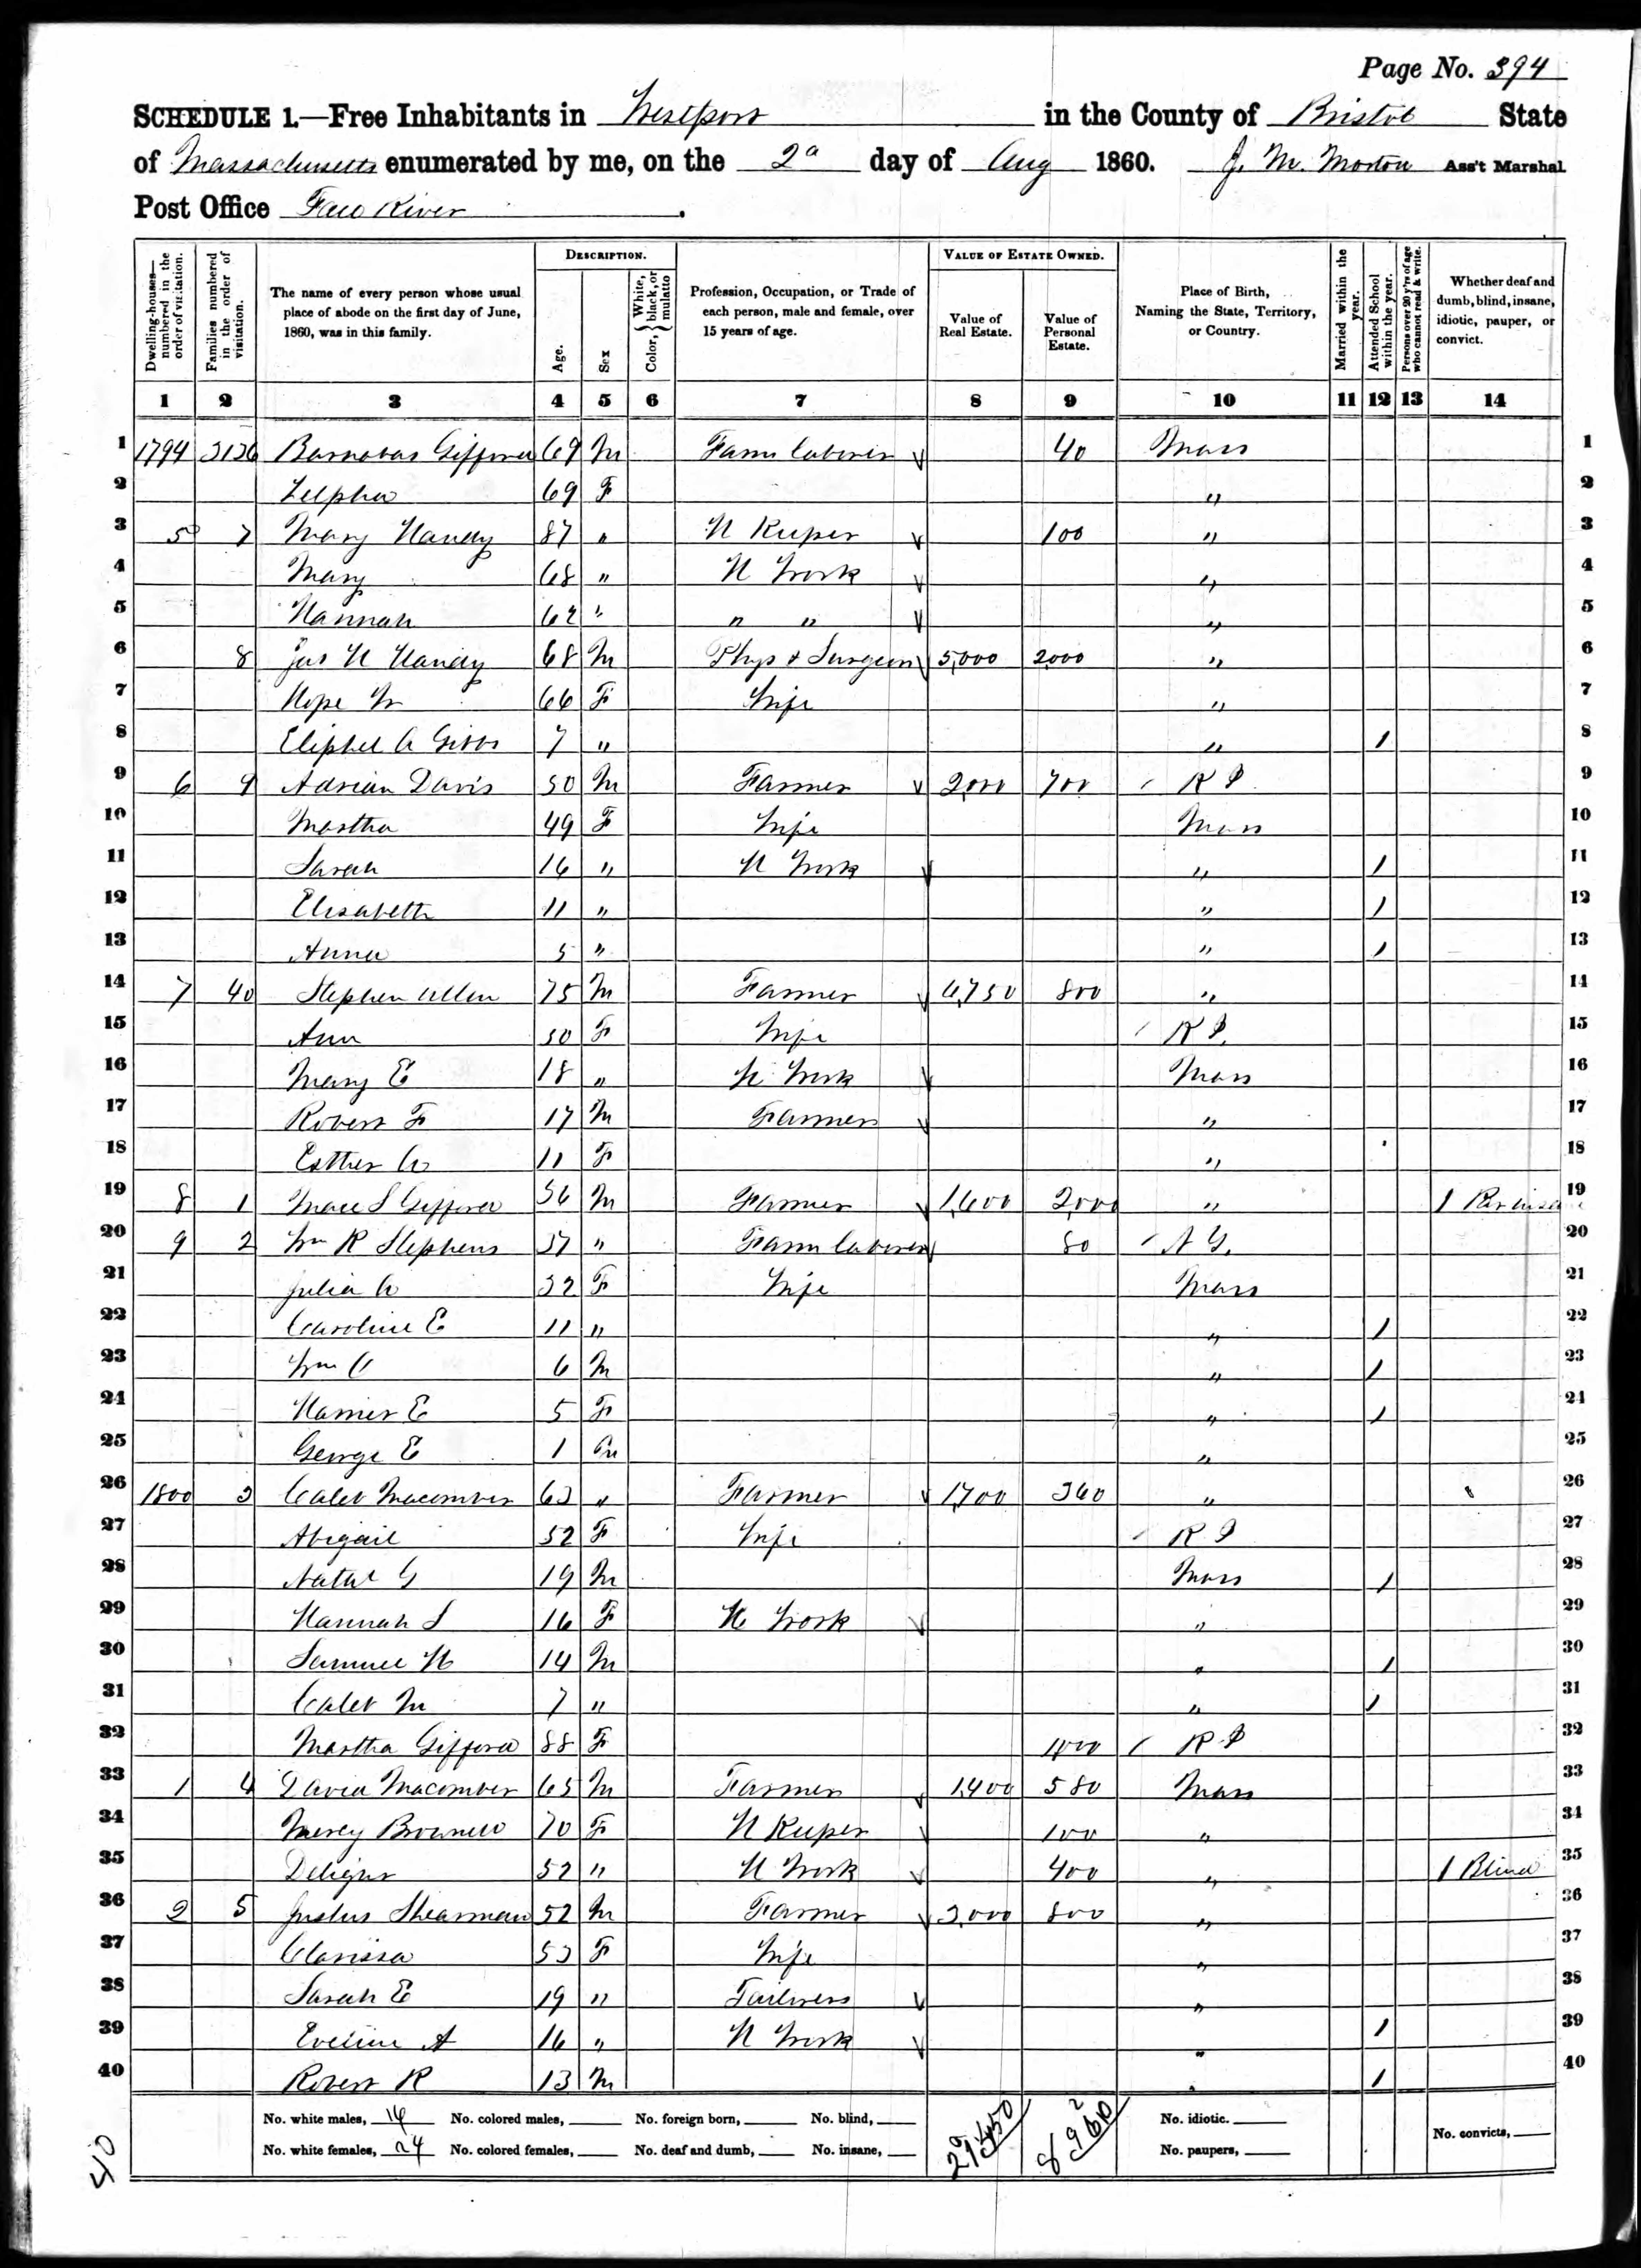 Page No. 394
SCHEDULE 1.—Free Inhabitants in Westport in the County of Bristol State
of Massachusetts enumerated by me, on the 2d day of Aug 1860. J. M. Morton Ass't Marshal
Post Office Fall River.
Dwelling-houses—numbered in the order of visitation.
Families numbered in the order of visitation.
The name of every person whose usual place of abode on the first day of June, 1860, was in this family.
DESCRIPTION.
Age.
Sex
Color, White, black, or mulatto
Profession, Occupation, or Trade of each person, male and female, over 15 years of age.
VALUE OF ESTATE OWNED.
Value of Real Estate.
Value of Personal Estate.
Place of Birth, Naming the State, Territory, or Country.
Married within the year.
Attended School within the year.
Persons over 20 y'rs of age who cannot read & write.
Whether deaf and dumb, blind, insane, idiotic, pauper, or convict.
1 2 3 4 5 6 7 8 9 10 11 12 13 14
1 1794 Barnabas Gifford 69 M Farm laborer 40 Mass 1
2 Zilpha 69 F " 2
3 5 7 Mary Handy 87 " H Keeper 100 " 3
4 Mary 68 " H Work " 4
5 Hannah 62 " " " " 5
6 8 Jas H Handy 68 M Phys & Surgeon 5,000 2000 " 6
7 Hope W 66 F Wife " 7
8 Eliphel A Gibbs 7 " " 1 8
9 6 9 Adrian Davis 50 M Farmer 2,000 700 R I 9
10 Martha 49 F Wife Mass 10
11 Sarah 16 " H Work " 1 11
12 Elisabeth 11 " " 1 12
13 Anna 5 " " 1 13
14 7 40 Stephen Allen 75 M Farmer 6,750 800 " 14
15 Ann 50 F Wife R I. 15
16 Mary E 18 " H Work Mass 16
17 Robert F 17 M Farmer " 17
18 Esther A 11 F " 18
19 8 1 Gifford 56 M Farmer 1,600 2,000 " 1 19
20 9 2 Wm R Stephens 37 " Farm laborer 80 N Y. 20
21 Julia A 32 F Wife Mass 21
22 Caroline E 11 " " 1 22
23 Wm 6 M " 1 23
24 Harriet E 5 F " 1 24
25 George E 1 M " 25
26 1800 3 Caleb Macomber 63 " Farmer 1,700 360 " 26
27 Abigail 52 F Wife R I 27
28 G 19 M Mass 1 28
29 Hannah S 16 F H Work " 29
30 Samuel H 14 M " 1 30
31 Caleb M 7 " " 1 31
32 Martha Gifford 88 F 1,000 R I 32
33 1 4 David Macomber 65 M Farmer 1,400 580 Mass 33
34 Mercy Brownell 70 F H Keeper 100 " 34
35 Delight 52 " H Work 400 " 1 Blind 35
36 2 5 Justus Shearman 52 M Farmer 3,000 800 " 36
37 Clarissa 53 F Wife " 37
38 Sarah E 19 " Tailoress " 38
39 Eveline A 16 " H Work " 1 39
40 Robert R 13 M " 1 40
No. white males, 16 No. colored males, No. foreign born, No. blind, No. idiotic.
No. white females, 24 No. colored females, No. deaf and dumb, No. insane, No. paupers, No. convicts,
40